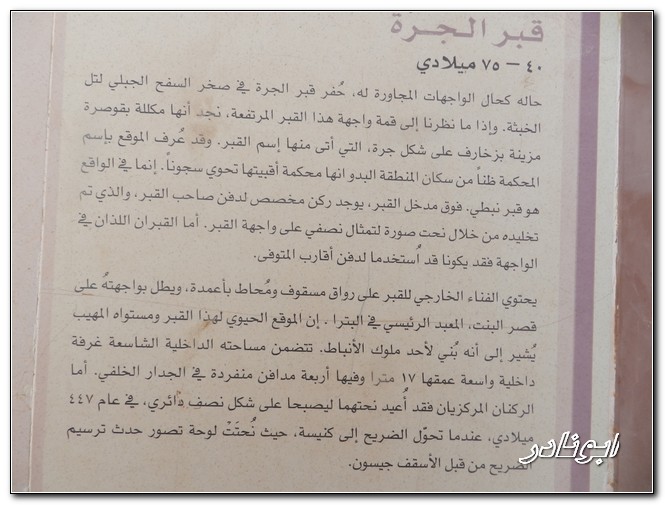 قبر الجرة
٤٠ – ٧٥ ميلادي
حاله كحال الواجهات المجاورة له، حُفر قبر الجرة في صخر السفح الجبلي لتل
الخبثة. وإذا ما نظرنا إلى قمة واجهة هذا القبر المرتفعة، نجد أنها مكللة بقوصرة
مزينة بزخارف على شكل جرة، التي أتى منها إسم القبر. وقد عُرف الموقع بإسم
المحكمة ظناً من سكان المنطقة البدو انها محكمة أقبيتها تحوي سجوناً. إنما في الواقع
هو قبر نبطي. فوق مدخل القبر، يوجد ركن مخصص لدفن صاحب القبر، والذي تم
تخليده من خلال نحت صورة لتمثال نصفي على واجهة القبر. أما القبران اللذان في
الواجهة فقد يكونا قد اُستخدما لدفن أقارب المتوفى.
يحتوي الفناء الخارجي للقبر على رواق مسقوف ومُحاط بأعمدة، ويطل بواجهتهُ على
قصر البنت، المعبد الرئيسي في البترا . إن الموقع الحيوي لهذا القبر ومستواه المهيب
يُشير إلى أنه بُني لأحد ملوك الأنباط. تتضمن مساحته الداخلية الشاسعة غرفة
داخلية واسعة عمقها ١٧ مترا وفيها أربعة مدافن منفردة في الجدار الخلفي. أما
الركنان المركزيان فقد أُعيد نحتهما ليصبحا على شكل نصف دائري، في عام ٤٤٧
ميلادي، عندما تحوّل الضريح إلى كنيسة، حيث نُحتَتْ لوحة تصور حدث ترسيم
الضريح من قبل الأسقف جيسون.
ابونادر